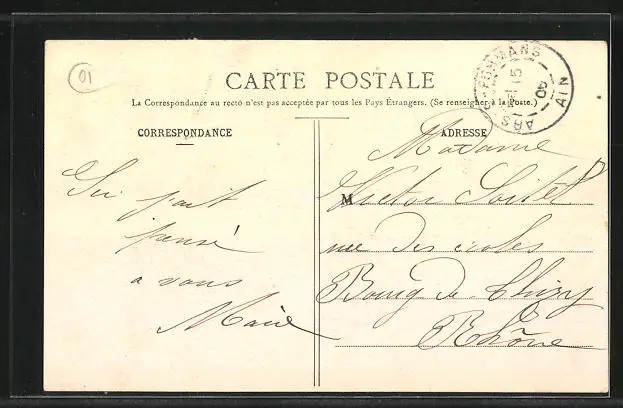 01
CARTE POSTALE
La Correspondance au recto n'est pas acceptée par tous les Pays Étrangers. (Se renseigner à la Poste.)
CORRESPONDANCE
ADRESSE
ARS FORMANS
15
09
AIN
pensé
a vous
Marie
Madame
M Victor
rue des écoles
Bourg de Thizy
Rhône